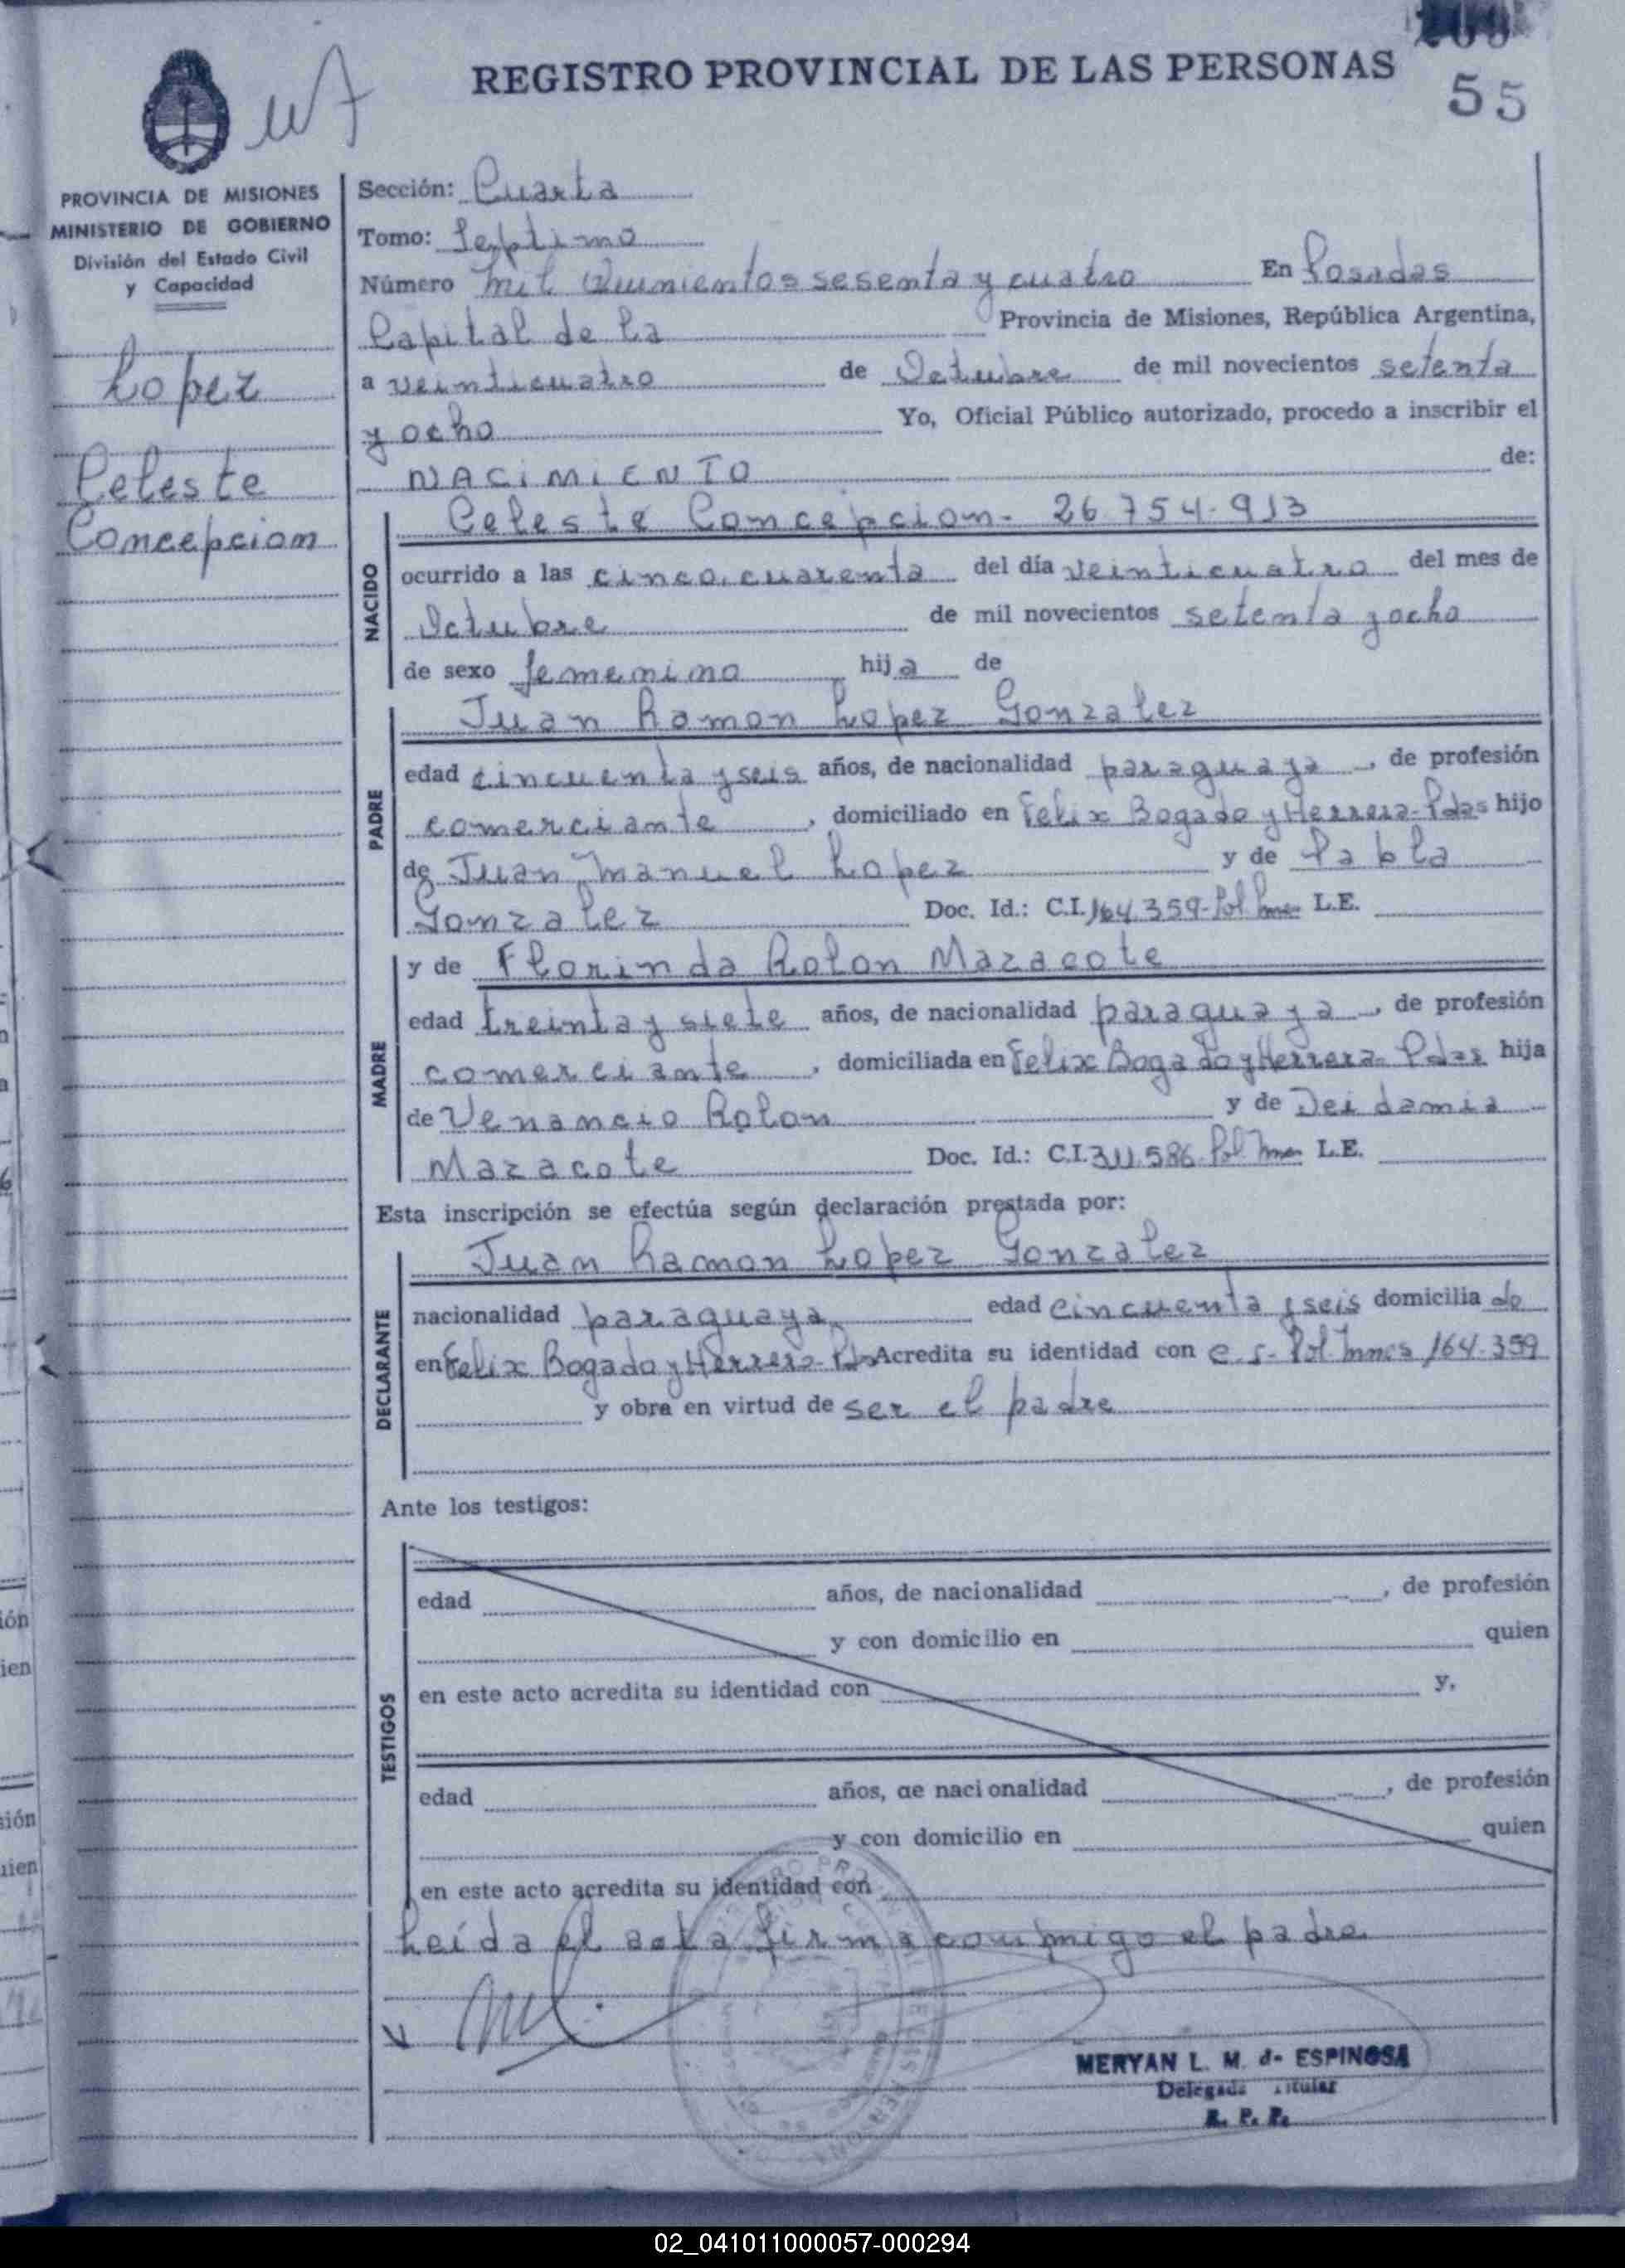 55
REGISTRO PROVINCIAL DE LAS PERSONAS
PROVINCIA DE MISIONES
MINISTERIO DE GOBIERNO
División del Estado Civil
y Capacidad
Lopez
Celeste
Concepcion
Sección: Cuarta
Tomo: Septimo
Número mil Quinientos sesenta y cuatro En Posadas
Capital de la Provincia de Misiones, República Argentina,
a veinticuatro de Octubre de mil novecientos setenta
y ocho Yo, Oficial Público autorizado, procedo a inscribir el
NACIMIENTO de:
NACIDO
Celeste Concepcion - 26.754.913
ocurrido a las cinco, cuarenta del día veinticuatro del mes de
Octubre de mil novecientos setenta y ocho
de sexo femenino hija de
PADRE
Juan Ramon Lopez Gonzalez
edad cincuenta y seis años, de nacionalidad paraguaya, de profesión
comerciante, domiciliado en Felix Bogado y Herrera-Pdas hijo
de Juan Manuel Lopez y de Pabla
Gonzalez Doc. Id.: C.I. 164.359-Pol. L.E.
MADRE
y de Florinda Rolon Mazacote
edad treinta y siete años, de nacionalidad paraguaya, de profesión
comerciante, domiciliada en Felix Bogado y Herrera- Pdas hija
de Venancio Rolon y de Deidamia
Mazacote Doc. Id.: C.I. 311.586-Pol. L.E.
Esta inscripción se efectúa según declaración prestada por:
DECLARANTE
Juan Ramon Lopez Gonzalez
nacionalidad paraguaya, edad cincuenta y seis domiciliado
en Felix Bogado y Herrera- Pds Acredita su identidad con Pol. Mnes 164.359
y obra en virtud de ser el padre
Ante los testigos:
TESTIGOS
edad años, de nacionalidad , de profesión
y con domicilio en quien
en este acto acredita su identidad con y,
edad años, de nacionalidad , de profesión
y con domicilio en quien
en este acto acredita su identidad con
Leída el acta firma conmigo el padre
MERYAN L. M. de ESPINOSA
Delegada Titular
R. P. P.
02_041011000057-000294